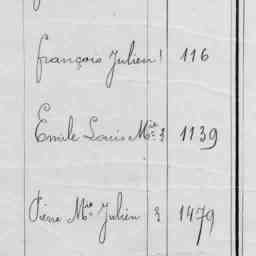 François Julien 1 116
Emile Louis Mie 3 1139
Pierre Mie Julien 3 1479